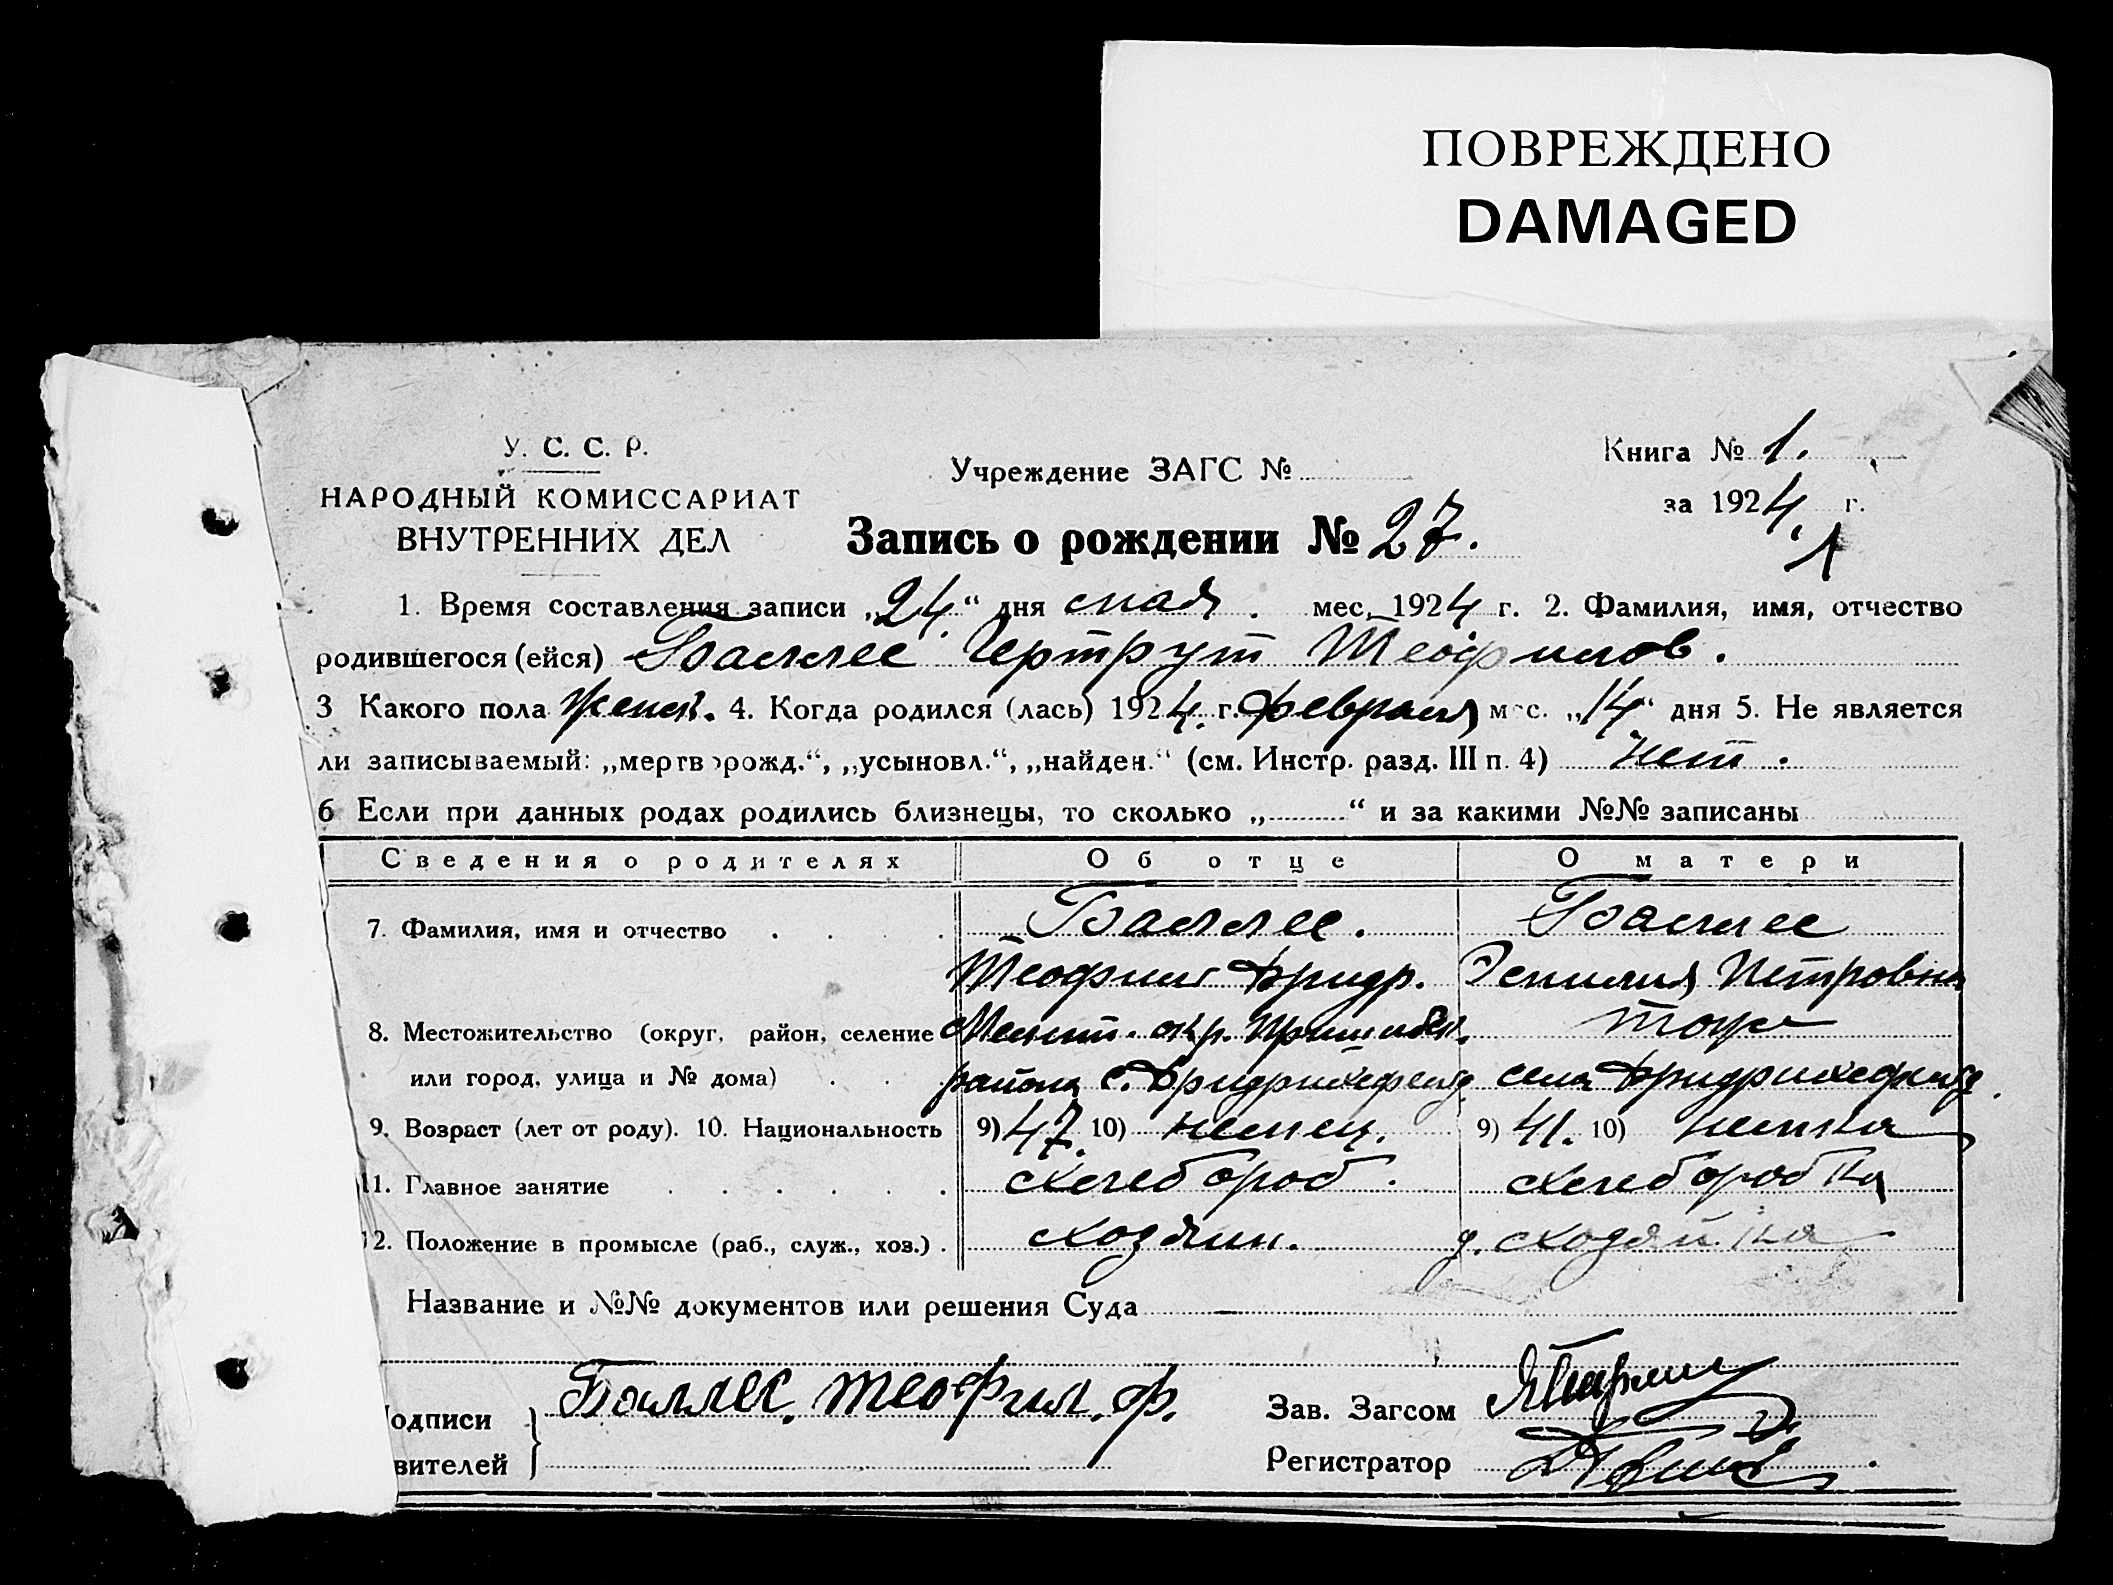 ПОВРЕЖДЕНО
DAMAGED
У. С. С. Р.
НАРОДНЫЙ КОМИССАРИАТ
ВНУТРЕННИХ ДЕЛ
Учреждение ЗАГС №
Книга № 1.
за 1924 г.
Запись о рождении № 27.
1. Время составления записи „24“ дня мая. мес. 1924 г. 2. Фамилия, имя, отчество
родившегося (ейся) Баллес Гертрут Теофилов.
3 Какого пола женск. 4. Когда родился (лась) 1924 г. февраля мес. „14“ дня 5. Не является
ли записываемый: „мертворожд.“, „усыновл.“, „найден.“ (см. Инстр. разд. III п. 4) нет.
6 Если при данных родах родились близнецы, то сколько „ “ и за какими №№ записаны
Сведения о родителях Об отце О матери
7. Фамилия, имя и отчество Баллес. Баллес
Теофил Фридр. Эмилия Петровна
8. Местожительство (округ, район, селение Мелит. окр. Пришибск. тоже
или город, улица и № дома) района с. Фридрихсфельд села Фридрихсфельд.
9. Возраст (лет от роду). 10. Национальность 9) 47. 10) немец. 9) 41. 10) немка
11. Главное занятие хлебороб. хлеборобка
12. Положение в промысле (раб., служ., хоз.) хозяин. д. хозяйка
Название и №№ документов или решения Суда —
одписи Баллес. Теофил. Ф. Зав. Загсом
вителей Регистратор